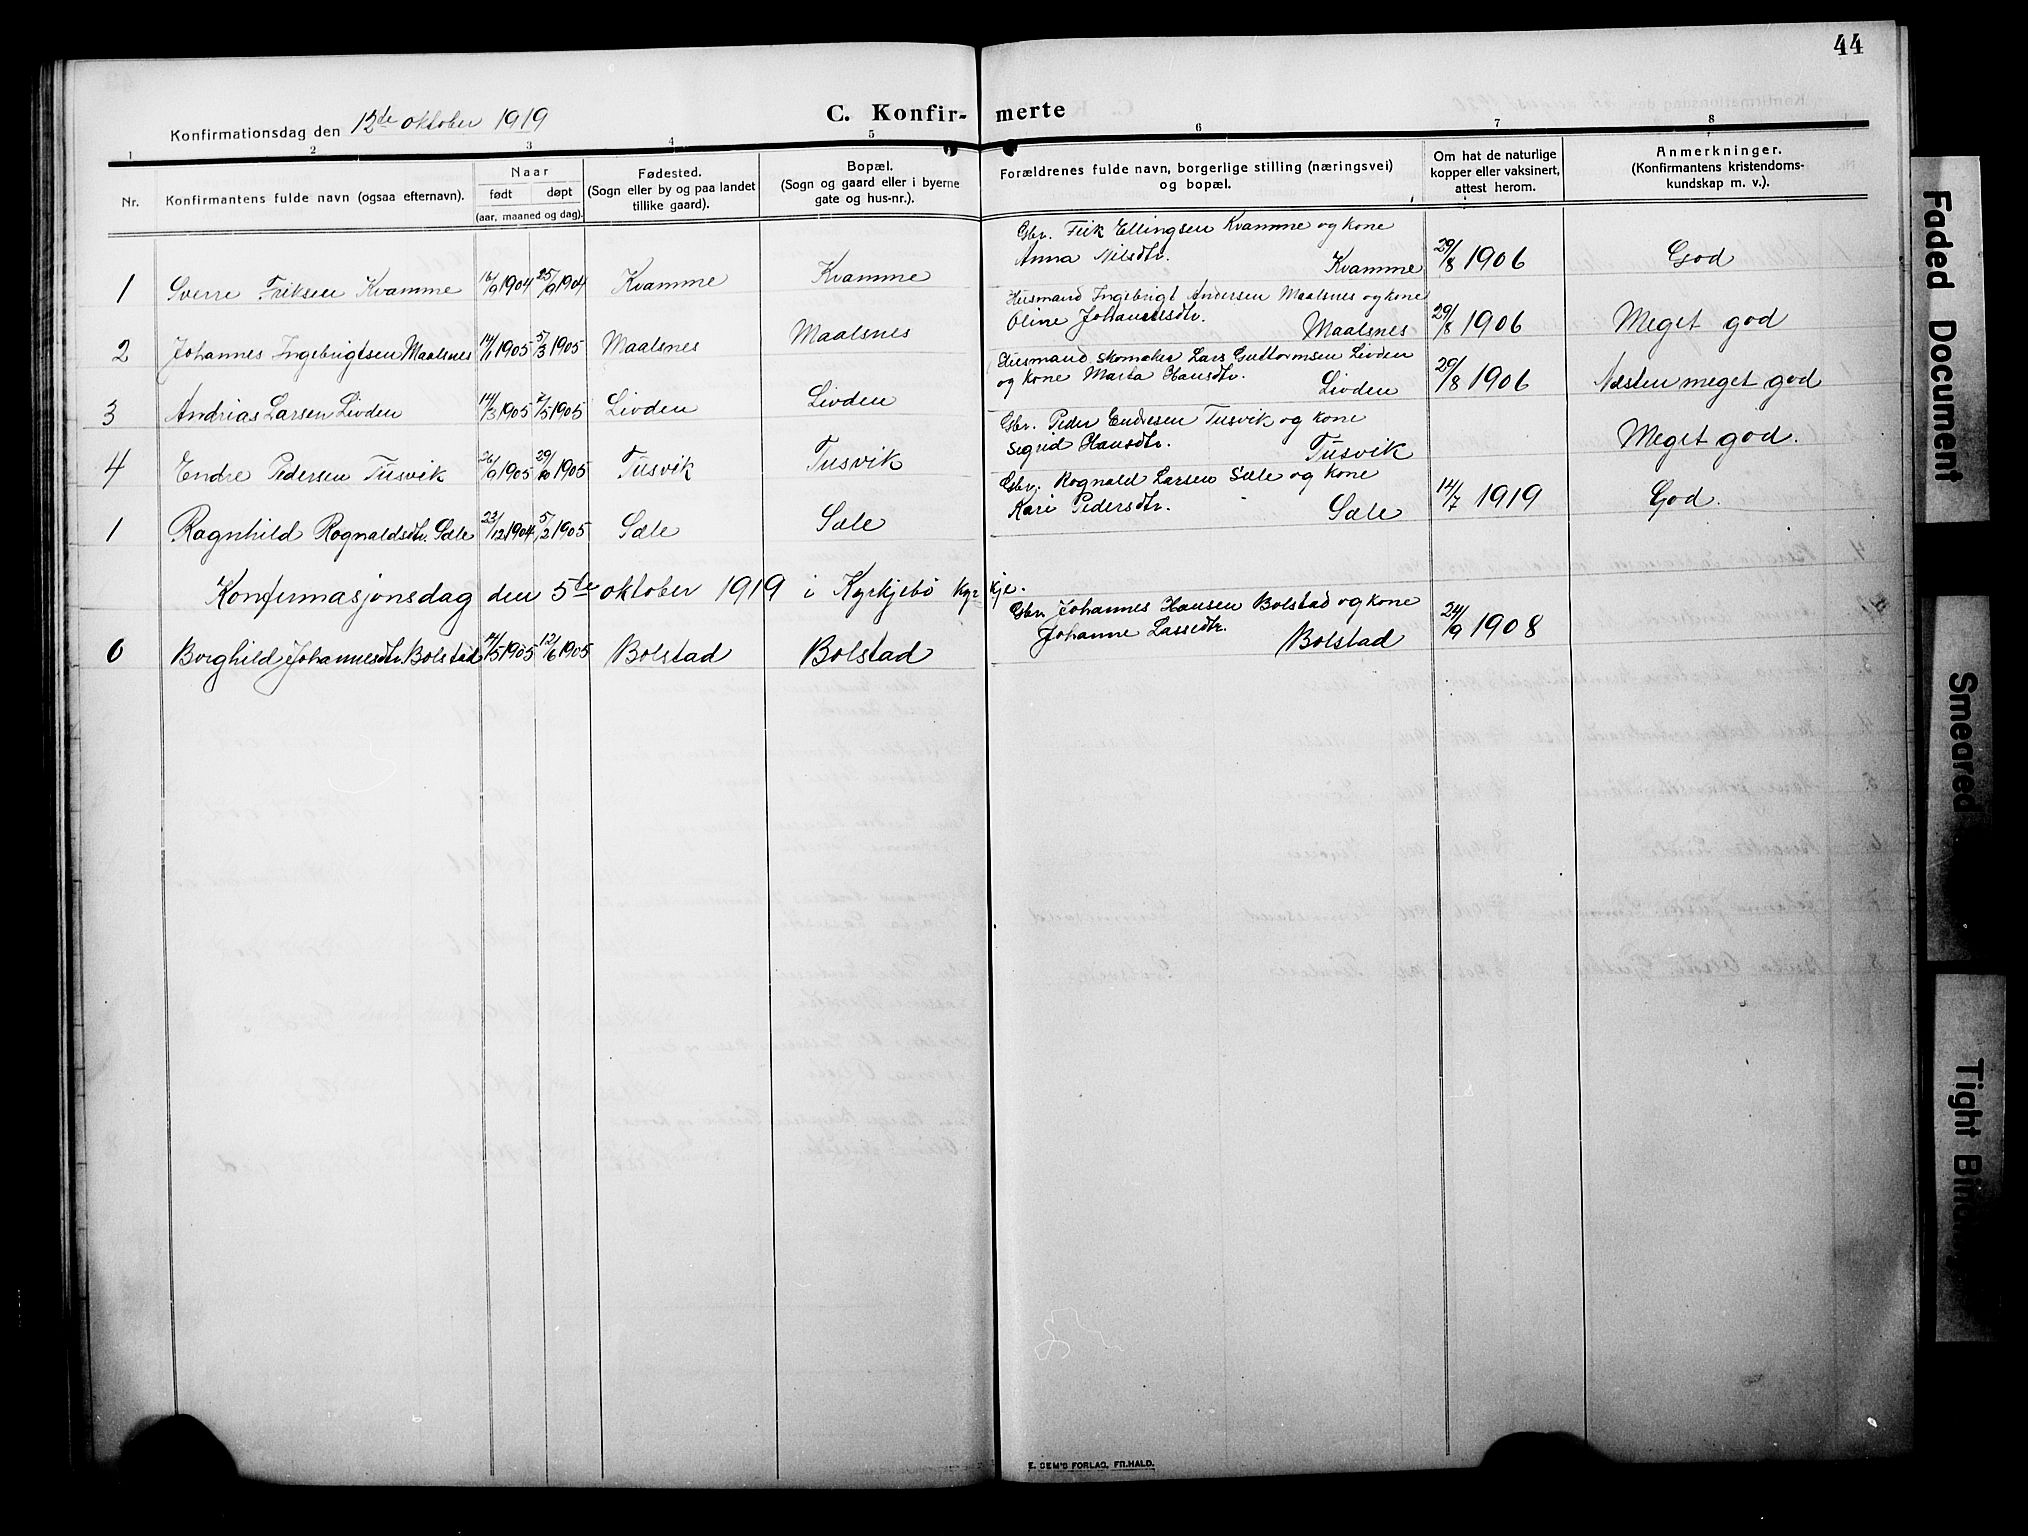 44
Konfirmationsdag den 12te oktober 1919
C. Konfirmerte
1 2 3 4 5 6 7 8
Nr.
Konfirmantens fulde navn (ogsaa efternavn).
Naar
født døpt
(aar, maaned og dag).
Fødested.
(Sogn eller by og paa landet
tillike gaard).
Bopæl.
(Sogn og gaard eller i byerne
gate og hus-nr.).
Forældrenes fulde navn, borgerlige stilling (næringsvei)
og bopæl.
Om hat de naturlige
kopper eller vaksinert,
attest herom.
Anmerkninger.
(Konfirmantens kristendoms-
kundskap m. v.).
Gbr. Erik Ellingsen Kvamme og kone
Anna Nilsdtr. Kvamme
1 Sverre Eriksen Kvamme 16/9 1904 25/9 1904 Kvamme Kvamme 29/8 1906 God
Husmand Ingebrigt Andersen Maalsnes og kone
Oline Johannesdtr. Maalsnes
2 Johannes Ingebrigtsen Maalsnes 14/1 1905 5/3 1905 Maalsnes Maalsnes 29/8 1906 Meget god
Husmand skomaker Lars Guttormsen Livden
og kone Marta Hansdtr. Livden
3 Andrias Larsen Livden 14/3 1905 7/5 1905 Livden Livden 29/8 1906 Næsten meget god
Gbr. Peder Endresen Tusvik og kone
Sigrid Hansdtr. Tusvik
4 Endre Pedersen Tusvik 26/9 1905 29/10 1905 Tusvik Tusvik Meget god.
Gbr. Rognald Larsen Sæle og kone
Kari Pedersdtr. Sæle
1 Ragnhild Rognaldsdtr. Sæle 23/12 1904 5/2 1905 Sæle Sæle 14/7 1919 God.
Konfirmasjonsdag den 5te oktober 1919 i Kyrkjebö Kyrkje.
Gbr. Johannes Hansen Bolstad og kone
Johanne Lassedtr. Bolstad
6 Borghild Johannesdtr. Bolstad 14/5 1905 12/6 1905 Bolstad Bolstad 24/9 1908
E. SEM'S FORLAG, FR.HALD.
Faded Document
Smeared
Tight